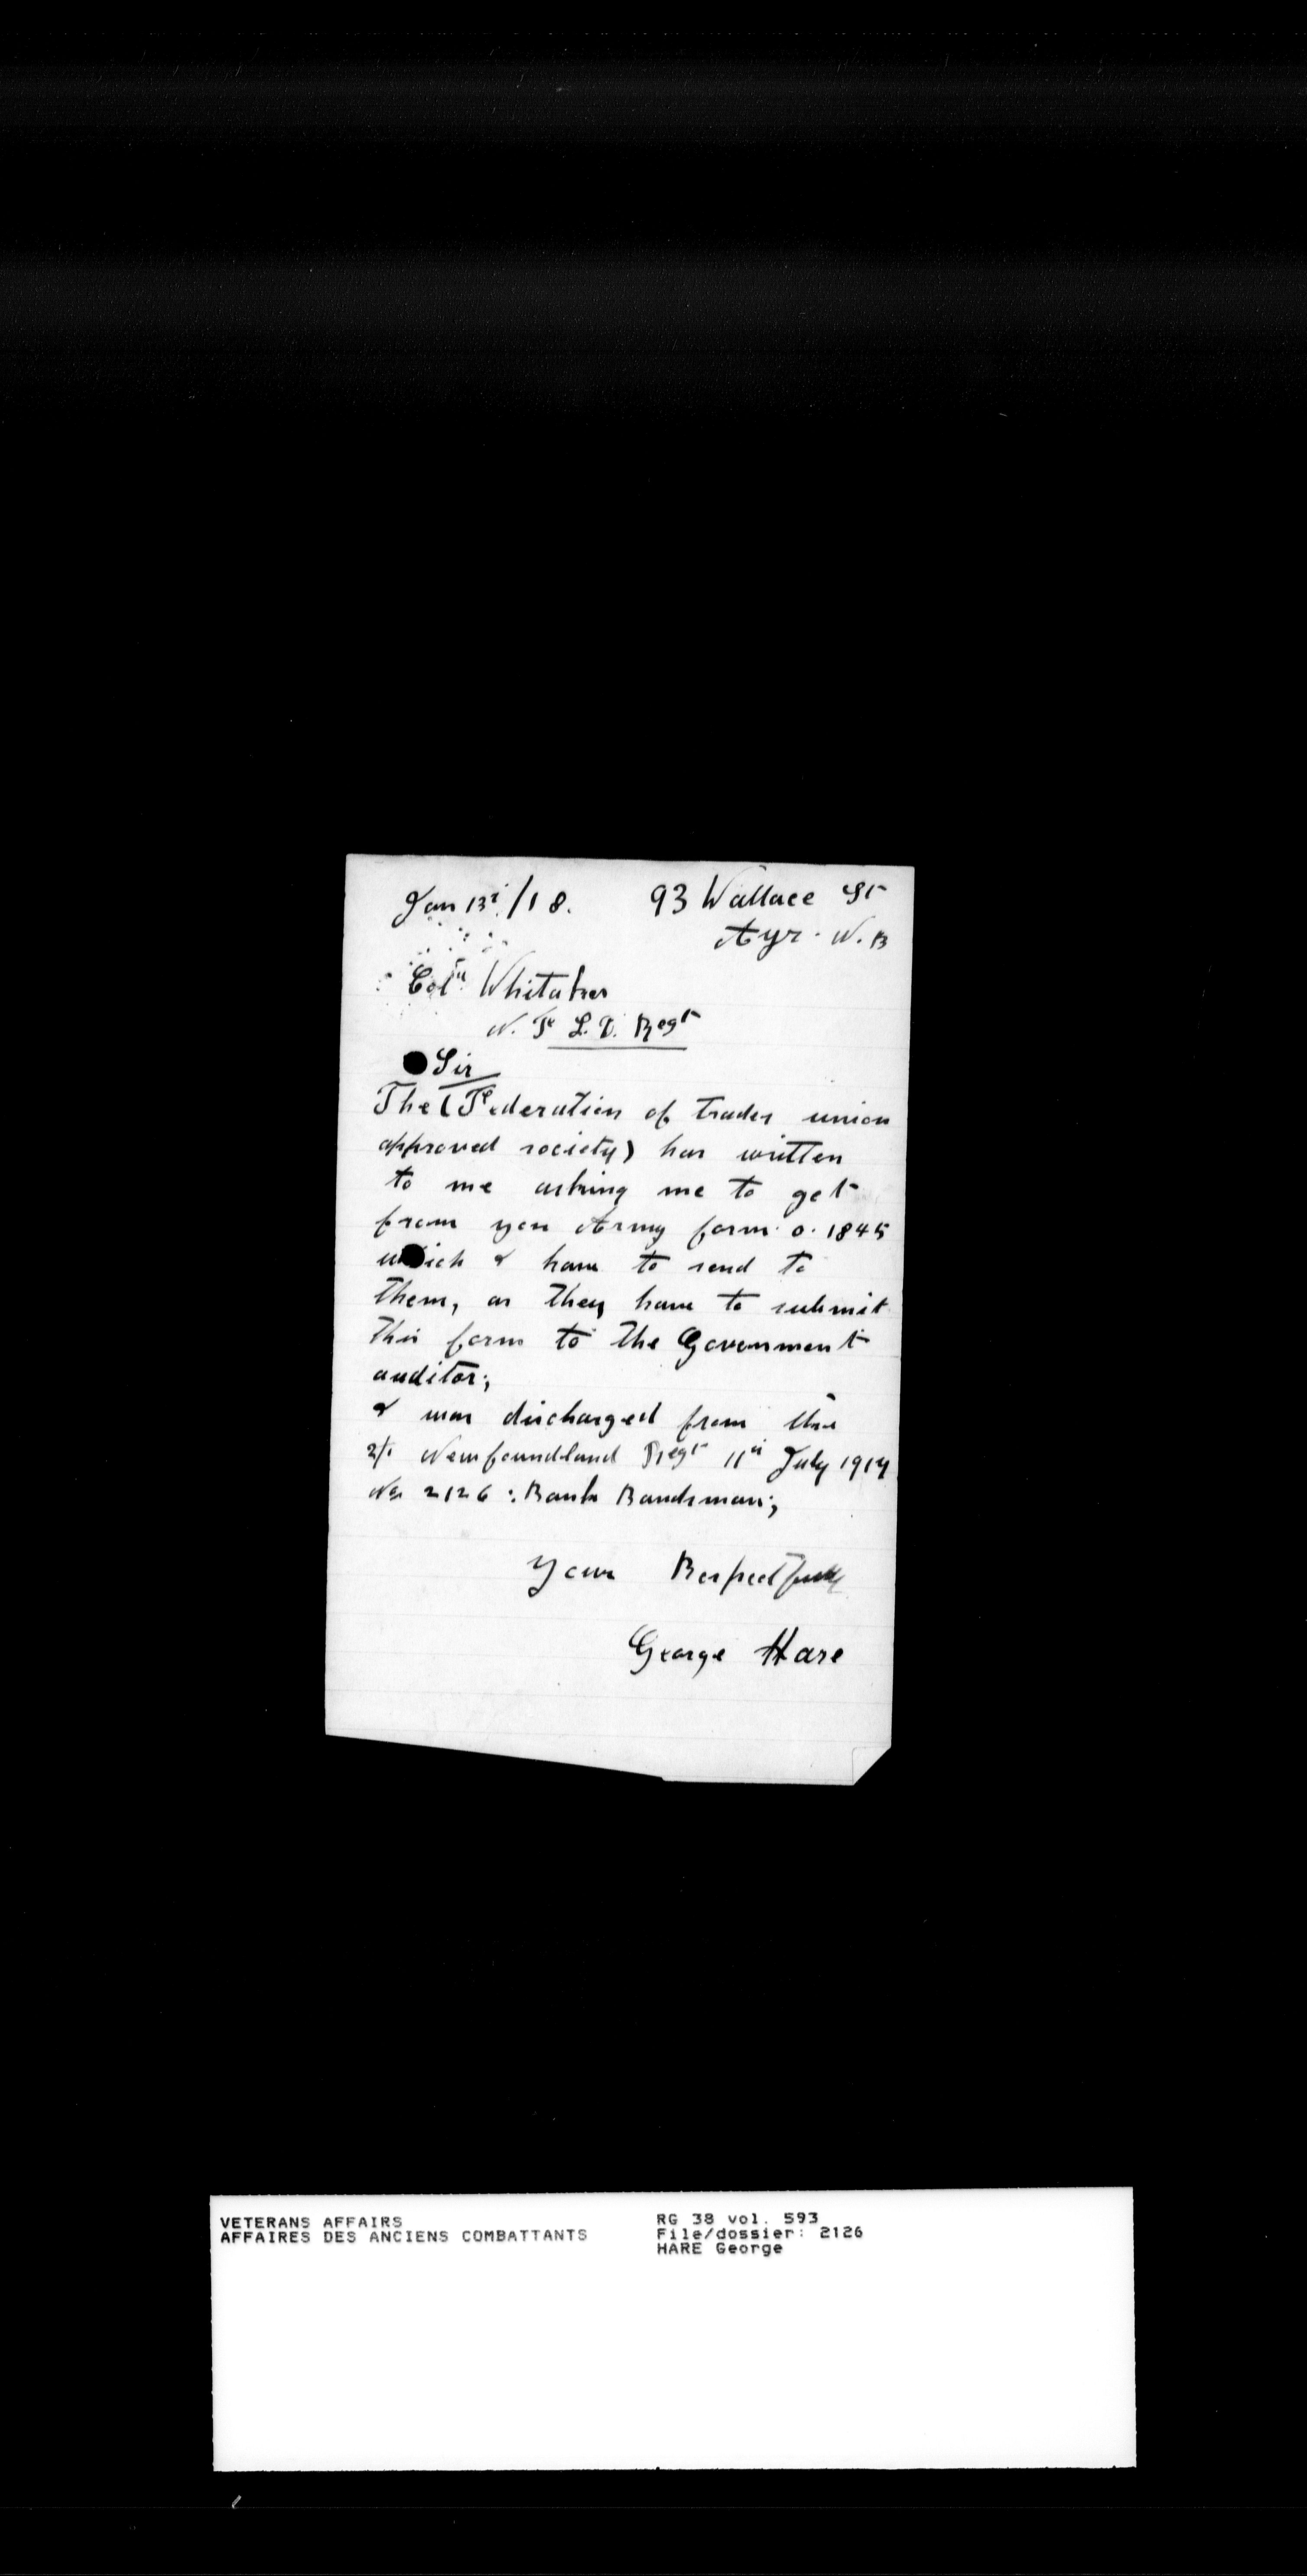 Jan 13th/18. 93 Wallace St
Ayr. N.B
Coln Whitaker
N. F. L. D. Regt
Sir
The (Federation of Trades union
approved society) has written
to me asking me to get
from you Army form. o. 1845
which I have to send to
them, as they have to submit
this form to the Government
auditor;
I was discharged from the
2/1 Newfoundland Regt 11th July 1917
No 2126 : Rank Bandsman;
Your Respectfully
George Hare
VETERANS AFFAIRS
AFFAIRES DES ANCIENS COMBATTANTS
RG 38 vol. 593
File/dossier: 2126
HARE George